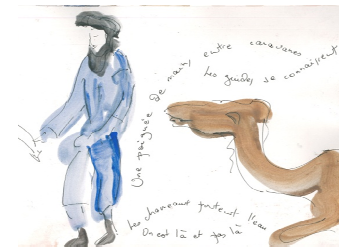 Une poignée de mains entre caravanes
Les guides se connaissent
Les chameaux portent l'eau
On est là et pas là